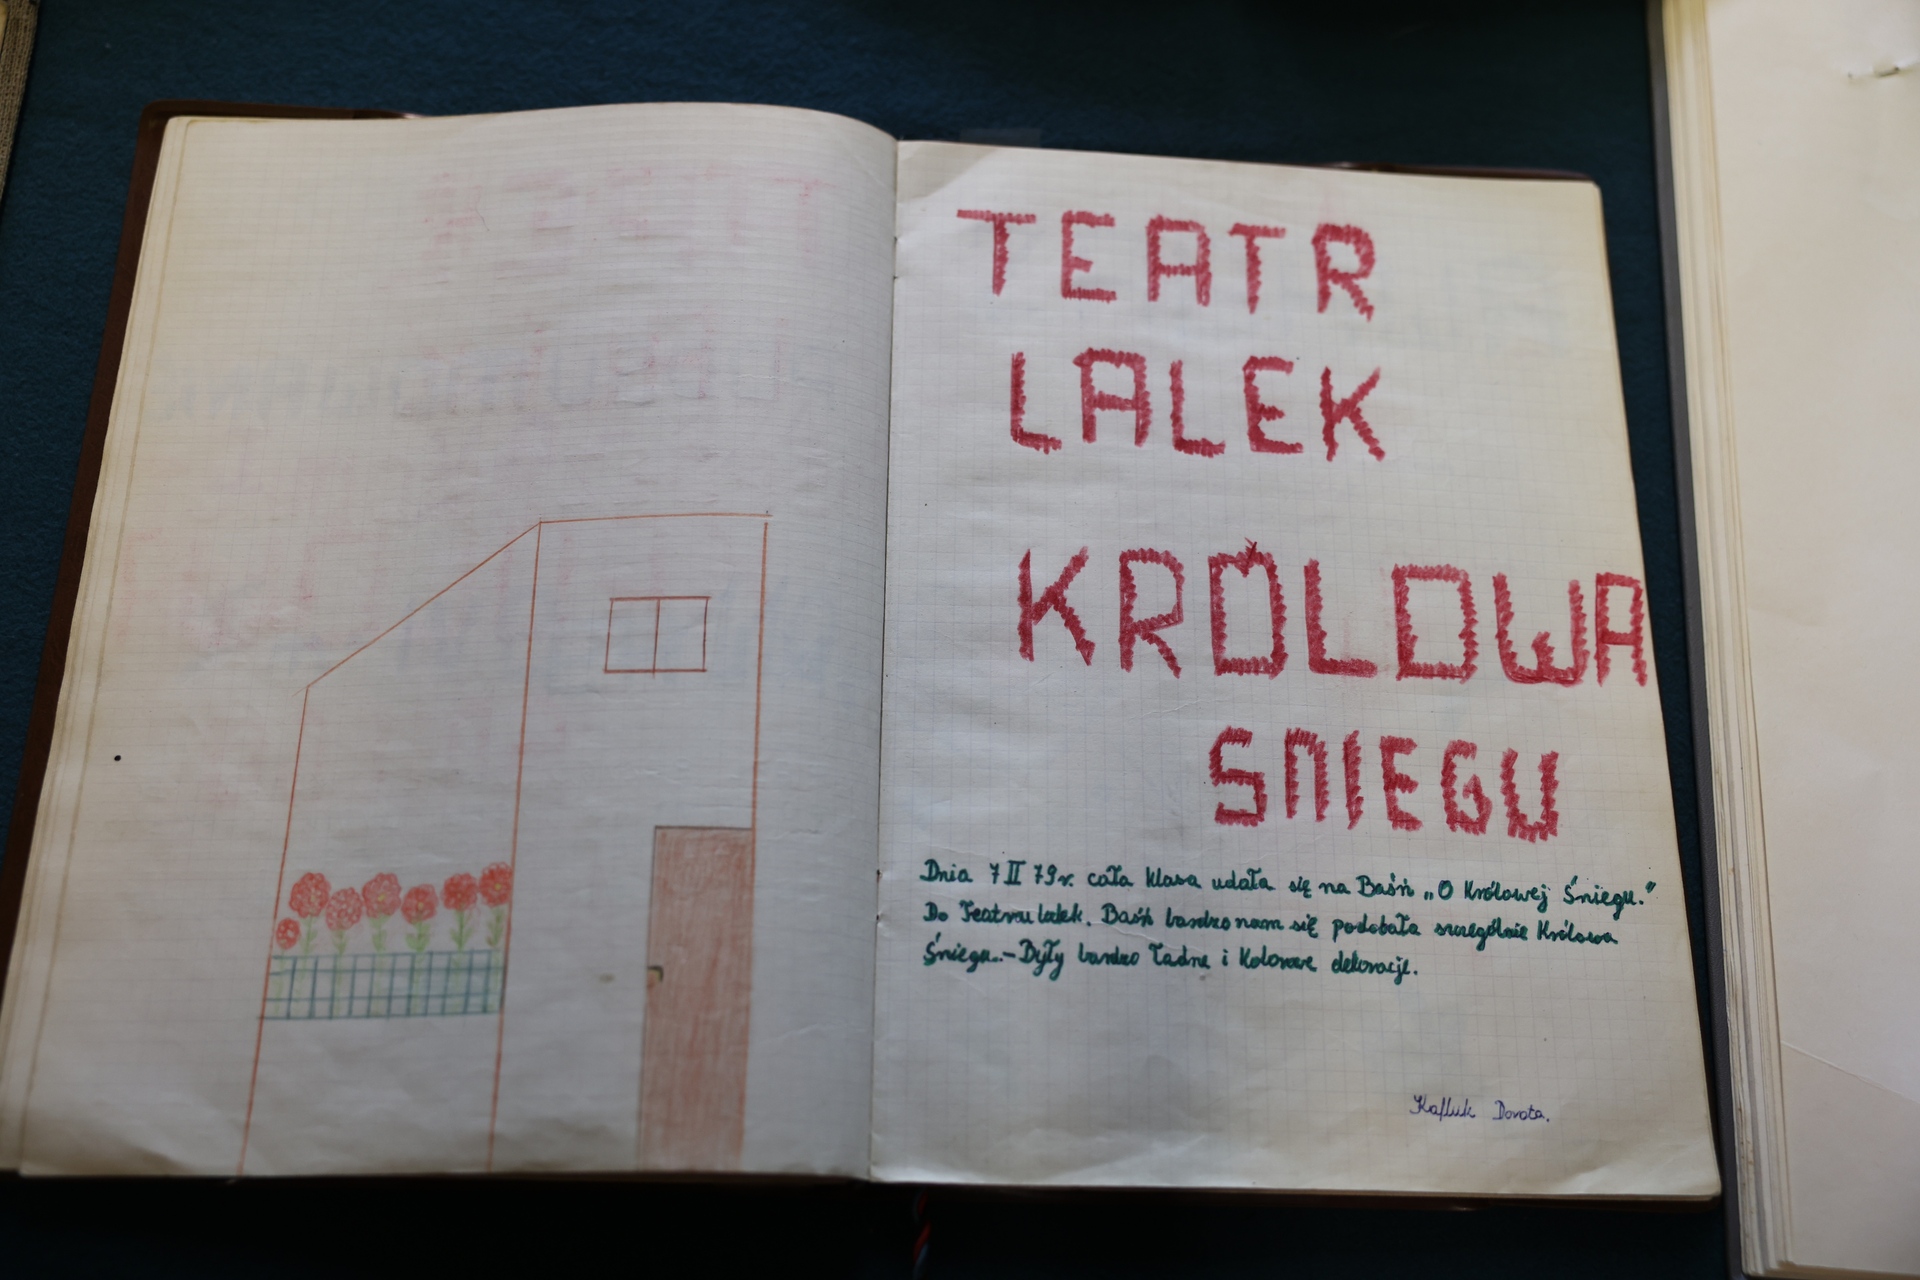 TEATR
LALEK
KRÓLOWA
SNIEGU
Dnia 7 II 79 r. cała klasa udała się na Baśń „O Królowej Śniegu.”
Do Teatru lalek. Baśń bardzo nam się podobała szczególnie Królowa
Śniegu.- Były bardzo ładne i kolorowe dekoracje.
Kafluk Dorota.